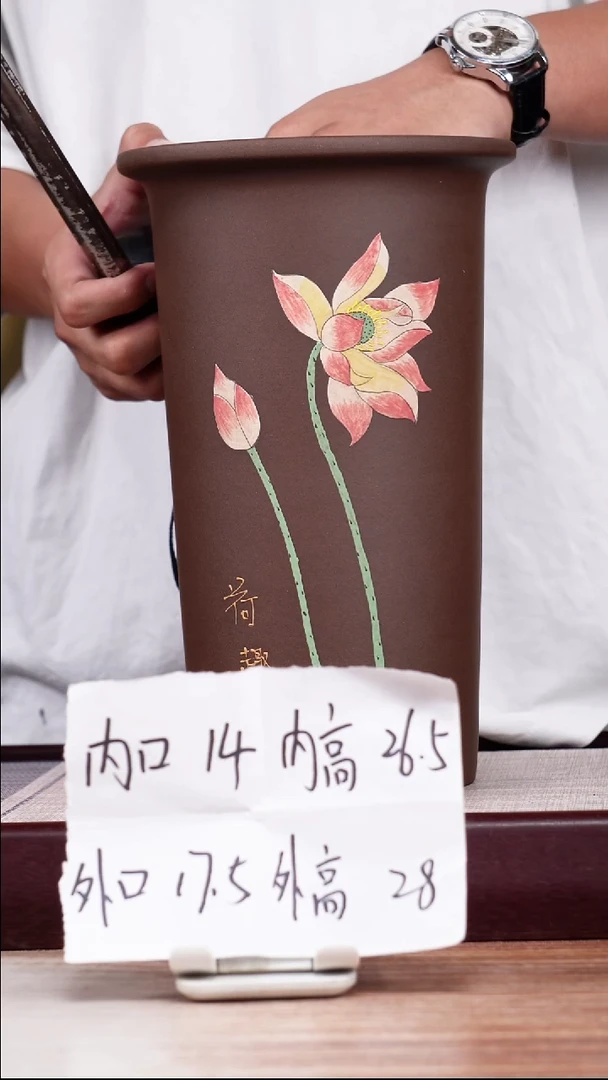 荷
趣
内口 14 内高 26.5
外口 17.5 外高 28